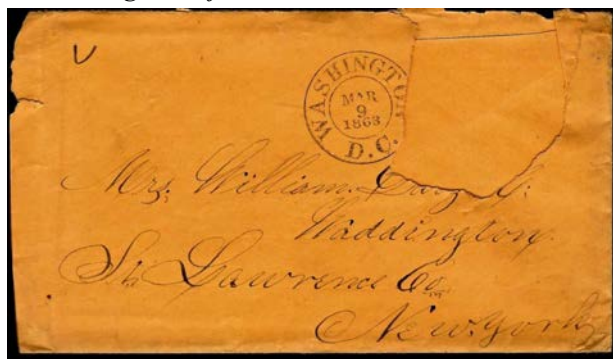 WASHINGTON
MAR
9
1863
D.C.
Mrs. William
Waddington.
St. Lawrence Co
New York